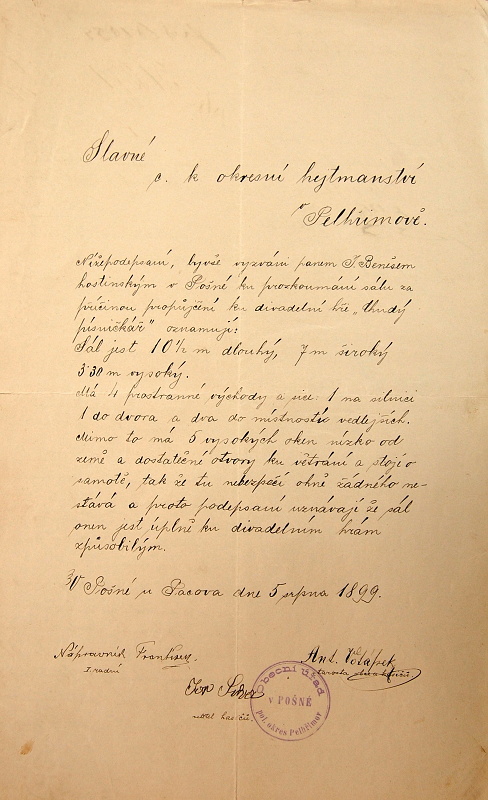 Slavné
c. k okresní hejtmanství
v
Pelhřimově.
Nížepodepsaní, byvše vyzváni panem J. Benešem
hostinským v Pošné ku prozkoumání sálu za
příčinou propůjčení ku divadelní hře „Chudý
písničkář" oznamují:
Sál jest 10½ m dlouhý, 7 m široký
3·30 m vysoký.
Má 4 prostranné východy a sice: 1 na silnici
1 do dvora a dva do místností vedlejších.
Mimo to má 5 vysokých oken nízko od
země a dostatečné otvory ku větrání a stojí o
samotě, tak že tu nebezpečí ohně žádného ne-
stává a proto podepsaní uznávají že sál
onen jest úplně ku divadelním hrám
způsobilým.
V Pošné u Pacova dne 5 srpna 1899.
Nápravník František
I radní
Ant.
starosta
Jan
hasičů
Obecní úřad
v POŠNÉ
pol. okres Pelhřimov